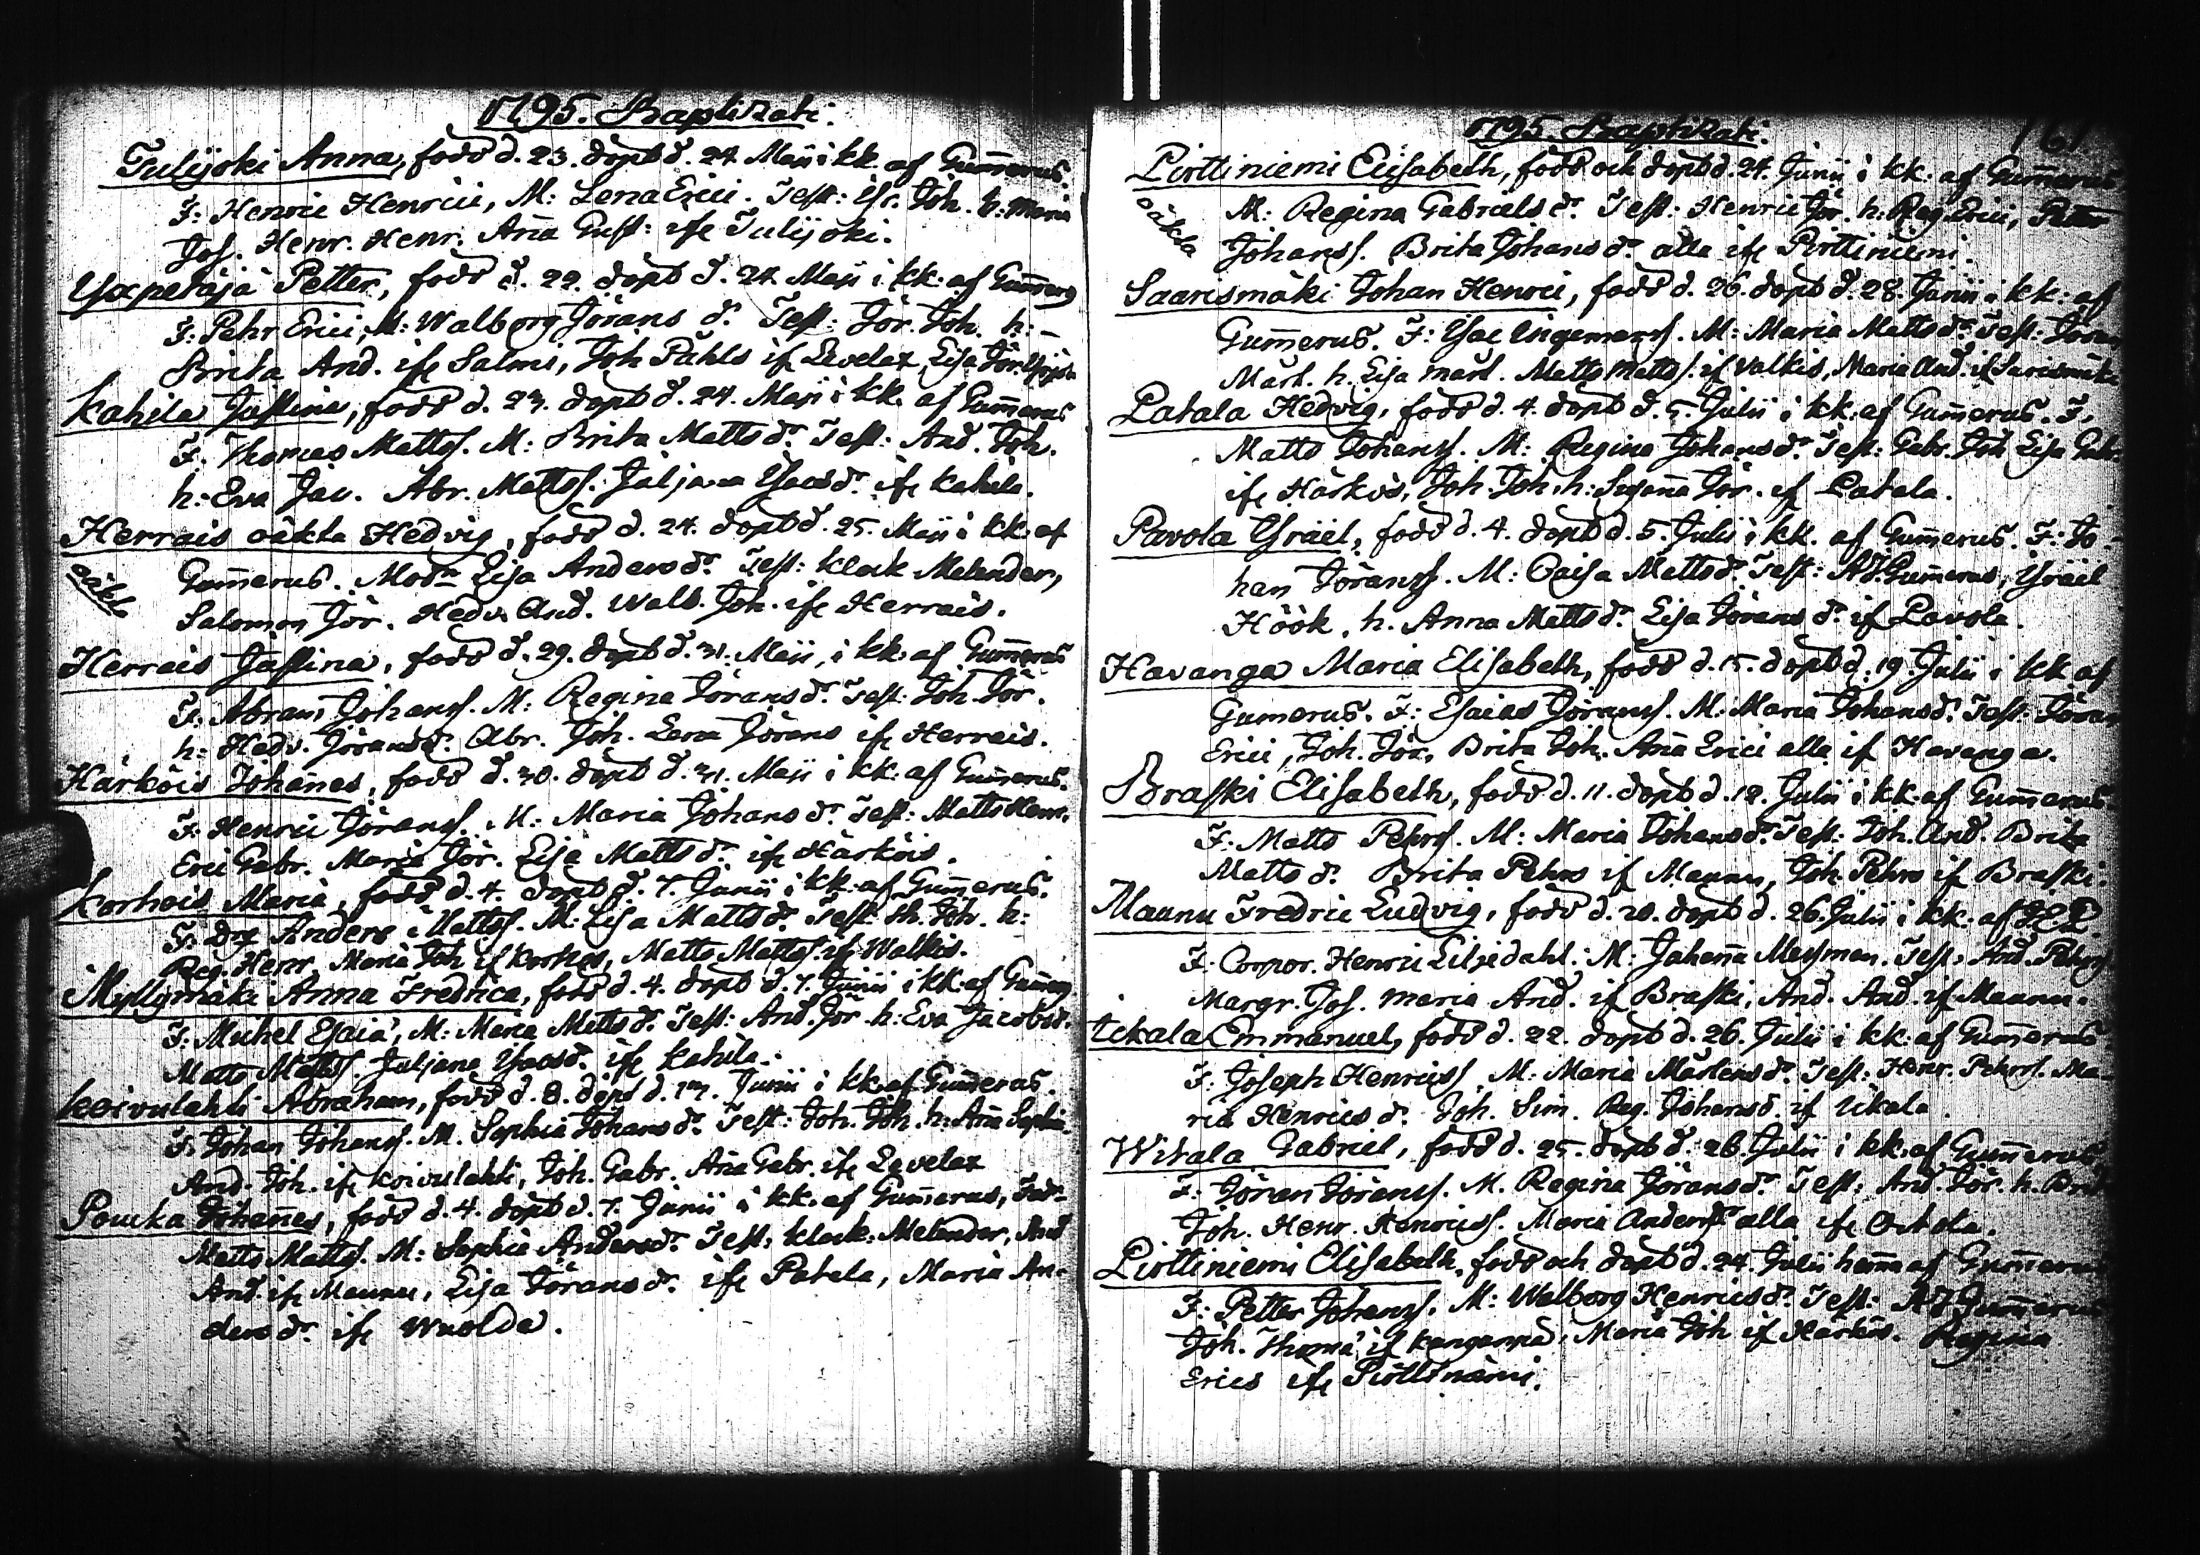 1795. Baptizati.
Tulijoki Anna, född d. 23. döpt d. 24 Maji i kk. af Gum̄erus.
F: Henric Henrici, M: Lena Erici. Test: Joh. h: Maria
Jos. Henr. Henr. An̄a Gust: ifr Tulijoki.
Yxpetäjä Petter, född d. 22. döpt d. 24 Maji i kk: af Gum̄erus
F: Pehr Erici, M: Walborg Jörans dr. Test: Jör. Joh. h:
Brita And. ifr Salmi, Joh Påhls if Levelax, Lisa Jör.
Kahila Justina, född d. 23. döpt d. 24. Maji i kk. af Gum̄erus
F: Thomas Matts. M: Brita Matts dr. Test: And. Joh.
h: Eva Jac. Abr. Matts. Juljana Ysacs dr. ifr Kahila.
Herrais oäkta Hedvig, född d. 24. döpt d. 25. Maji i kk: af
oäkta
Gum̄erus. Modr Lisa Anders dr. Test: klock Melander,
Salomon Jör. Hedv. And. Walb. Joh. ifr Herrais.
Herrais Justina, född d. 29. döpt d. 31. Maji, i kk: af Gum̄erus
F: Abram Johans. M: Regina Jörans dr. Test: Joh. Jör.
h: Hedv. Jörans dr. Abr. Joh. Lena Jörans ifr Herrais.
Härköis Johan̄es, född d. 30. döpt d. 31. Maji i kk: af Gum̄erus.
F: Henric Jörans. M: Maria Johans dr. Test: Matts Henr.
Eric Gabr. Maria Jör. Lisa Matts dr. ifr Härköis.
Korhois Maria, född d. 4. döpt d. 7. Junii i kk: af Gum̄erus.
F: Drg Anders Matts. M: Lisa Matts dr. Test: Joh. h:
Reg. Henr. Maria Joh if Korhois, Matts Matts. if Walkis.
Myllymäki Anna Fredrica, född d. 4. döpt d. 7. Junii i kk: af Gum̄erus
F: Michel Esaiæ, M: Maria Matts dr. Test: And. Jör. h: Eva Jacobs dr.
Matts Matts. Juljana Ysacs dr. ifr Kahila.
Koivulahti Abraham, född d. 8. döpt d. Junii i kk: af Gum̄erus.
F: Johan Johans. M. Sophia Johans dr. Test: Joh. Joh. h: An̄a Sophia
And. Joh. ifr Koivulahti, Joh. Gabr. An̄a Gabr. ifr Levelax
Poucka Johan̄es, född d. 4. döpt d. 7. Junii i kk. af Gum̄erus, Fadr
Matts Matts. M: Sophia Anders dr. Test: klock: Melander, And
And. ifr Maunu, Lisa Jörans dr. ifr Patala, Maria An-
ders dr. ifr Wuolda.
1795. Baptizati.
161.
Pirttiniemi Elisabeth, född och döpt d. 24. Junii i kk. af Gum̄erus
oäkta
M: Regina Gabriels dr. Test: Henric Jör. h: Reg. Erici, Petter
Johans. Brita Johans dr. alla ifr Pirttiniemi.
Saarismäki Johan Henric, född d. 26. döpt d. 28. Junii i kk: af
Gum̄erus. F: Ysac Ingemars. M: Maria Matts dr. Test: Jöran
Märt. h. Lisa Märt. Matts Matts. if Walkis, Maria And. if Sarismäki
Patala Hedvig, född d. 4. döpt d. 5. Julii i kk: af Gum̄erus. F.
Matts Johans. M: Regina Johans dr. Test: Gabr. Joh Lisa Gabr.
ifr Härköis, Joh. Joh. h: Susan̄a Jör. if Patala.
Pavola Ysräel, född d. 4. döpt d. 5. Julii i kk. af Gum̄erus. F: Jo-
han Jörans. M: Caisa Matts dr. Test: AJ. Gum̄erus, Ysräel
Höök. h. Anna Matts dr. Lisa Jörans dr. if Pavola.
Havanga Maria Elisabeth, född d. 15. döpt d. 19. Julii i kk af
Gumerus. F: Esaias Jörans. M: Maria Johans dr. Test: Jöran
Erici, Joh. Jör. Brita Joh. An̄a Erici alla if Havanga.
Braski Elisabeth, född d. 11. döpt d. 12. Julii i kk: af Gum̄erus.
F: Matts Pehrs. M: Maria Johans dr. Test: Joh. And. Brita
Matts dr. Brita Pehrs if Maunu, Joh. Pehrs if Braski.
Maunu Fredric Ludvig, född d. 20. döpt d. 26. Julii i kk. af
F: Corpor. Henric Liljedahl. M: Johan̄a Meisman. Test: And. Pehrs
Margr. Jos. Maria And. if Braski, And. And. if Maunu.
Uckala Emmanuel, född d. 22. döpt d. 26. Julii i kk: af Gum̄erus.
F: Joseph Henrics. M: Maria Mårtens dr. Test: Henr. Pehrs. Ma-
ria Henrics dr. Joh. Sim. Reg. Johans d. if Uckala.
Witala Gabriel, född d. 25. döpt d. 26. Julii i kk: af Gum̄erus
F: Jöran Jörans. M. Regina Jörans dr. Test: And. Jör. h. Brita
Joh. Henr. Henrics. Maria Anders dr alla ifr
Pirttiniemi Elisabeth, född och döpt d. 24. Julii hem̄a af Gum̄erus
F: Petter Johans. M: Walborg Henrics dr. Test: AJ Gum̄erus
Joh. Thomæ if Kanganpä, Maria Joh if Härköis. Regina
Erics ifr Pirttinämi.